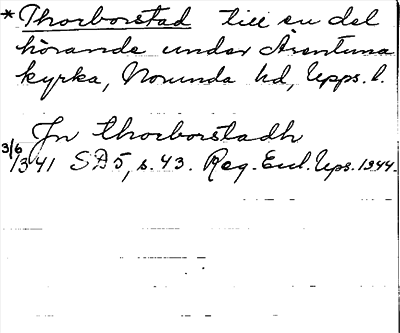 *Thorborstad till en del
hörande under Ärentuna
kyrka, Norunda hd, Upps. l.
Jn thorborstadh
3/6 1341 SD 5, s. 43. Reg. Eccl. Ups. 1344.